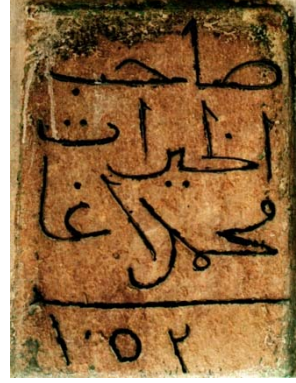 صاحب
الخيرات
محمد اغا
١٠٥٢